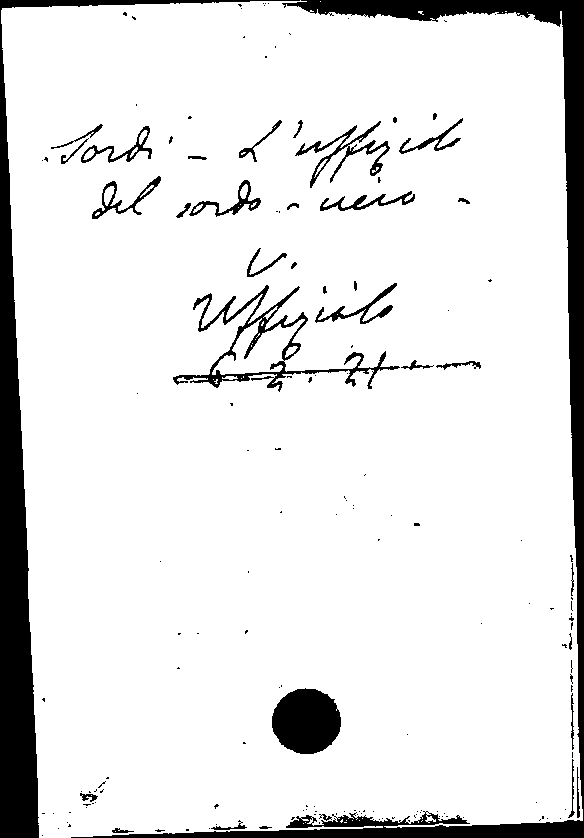 Sordi - L'uffizio
del sordo -
v.
Uffizio
6. 2. 21